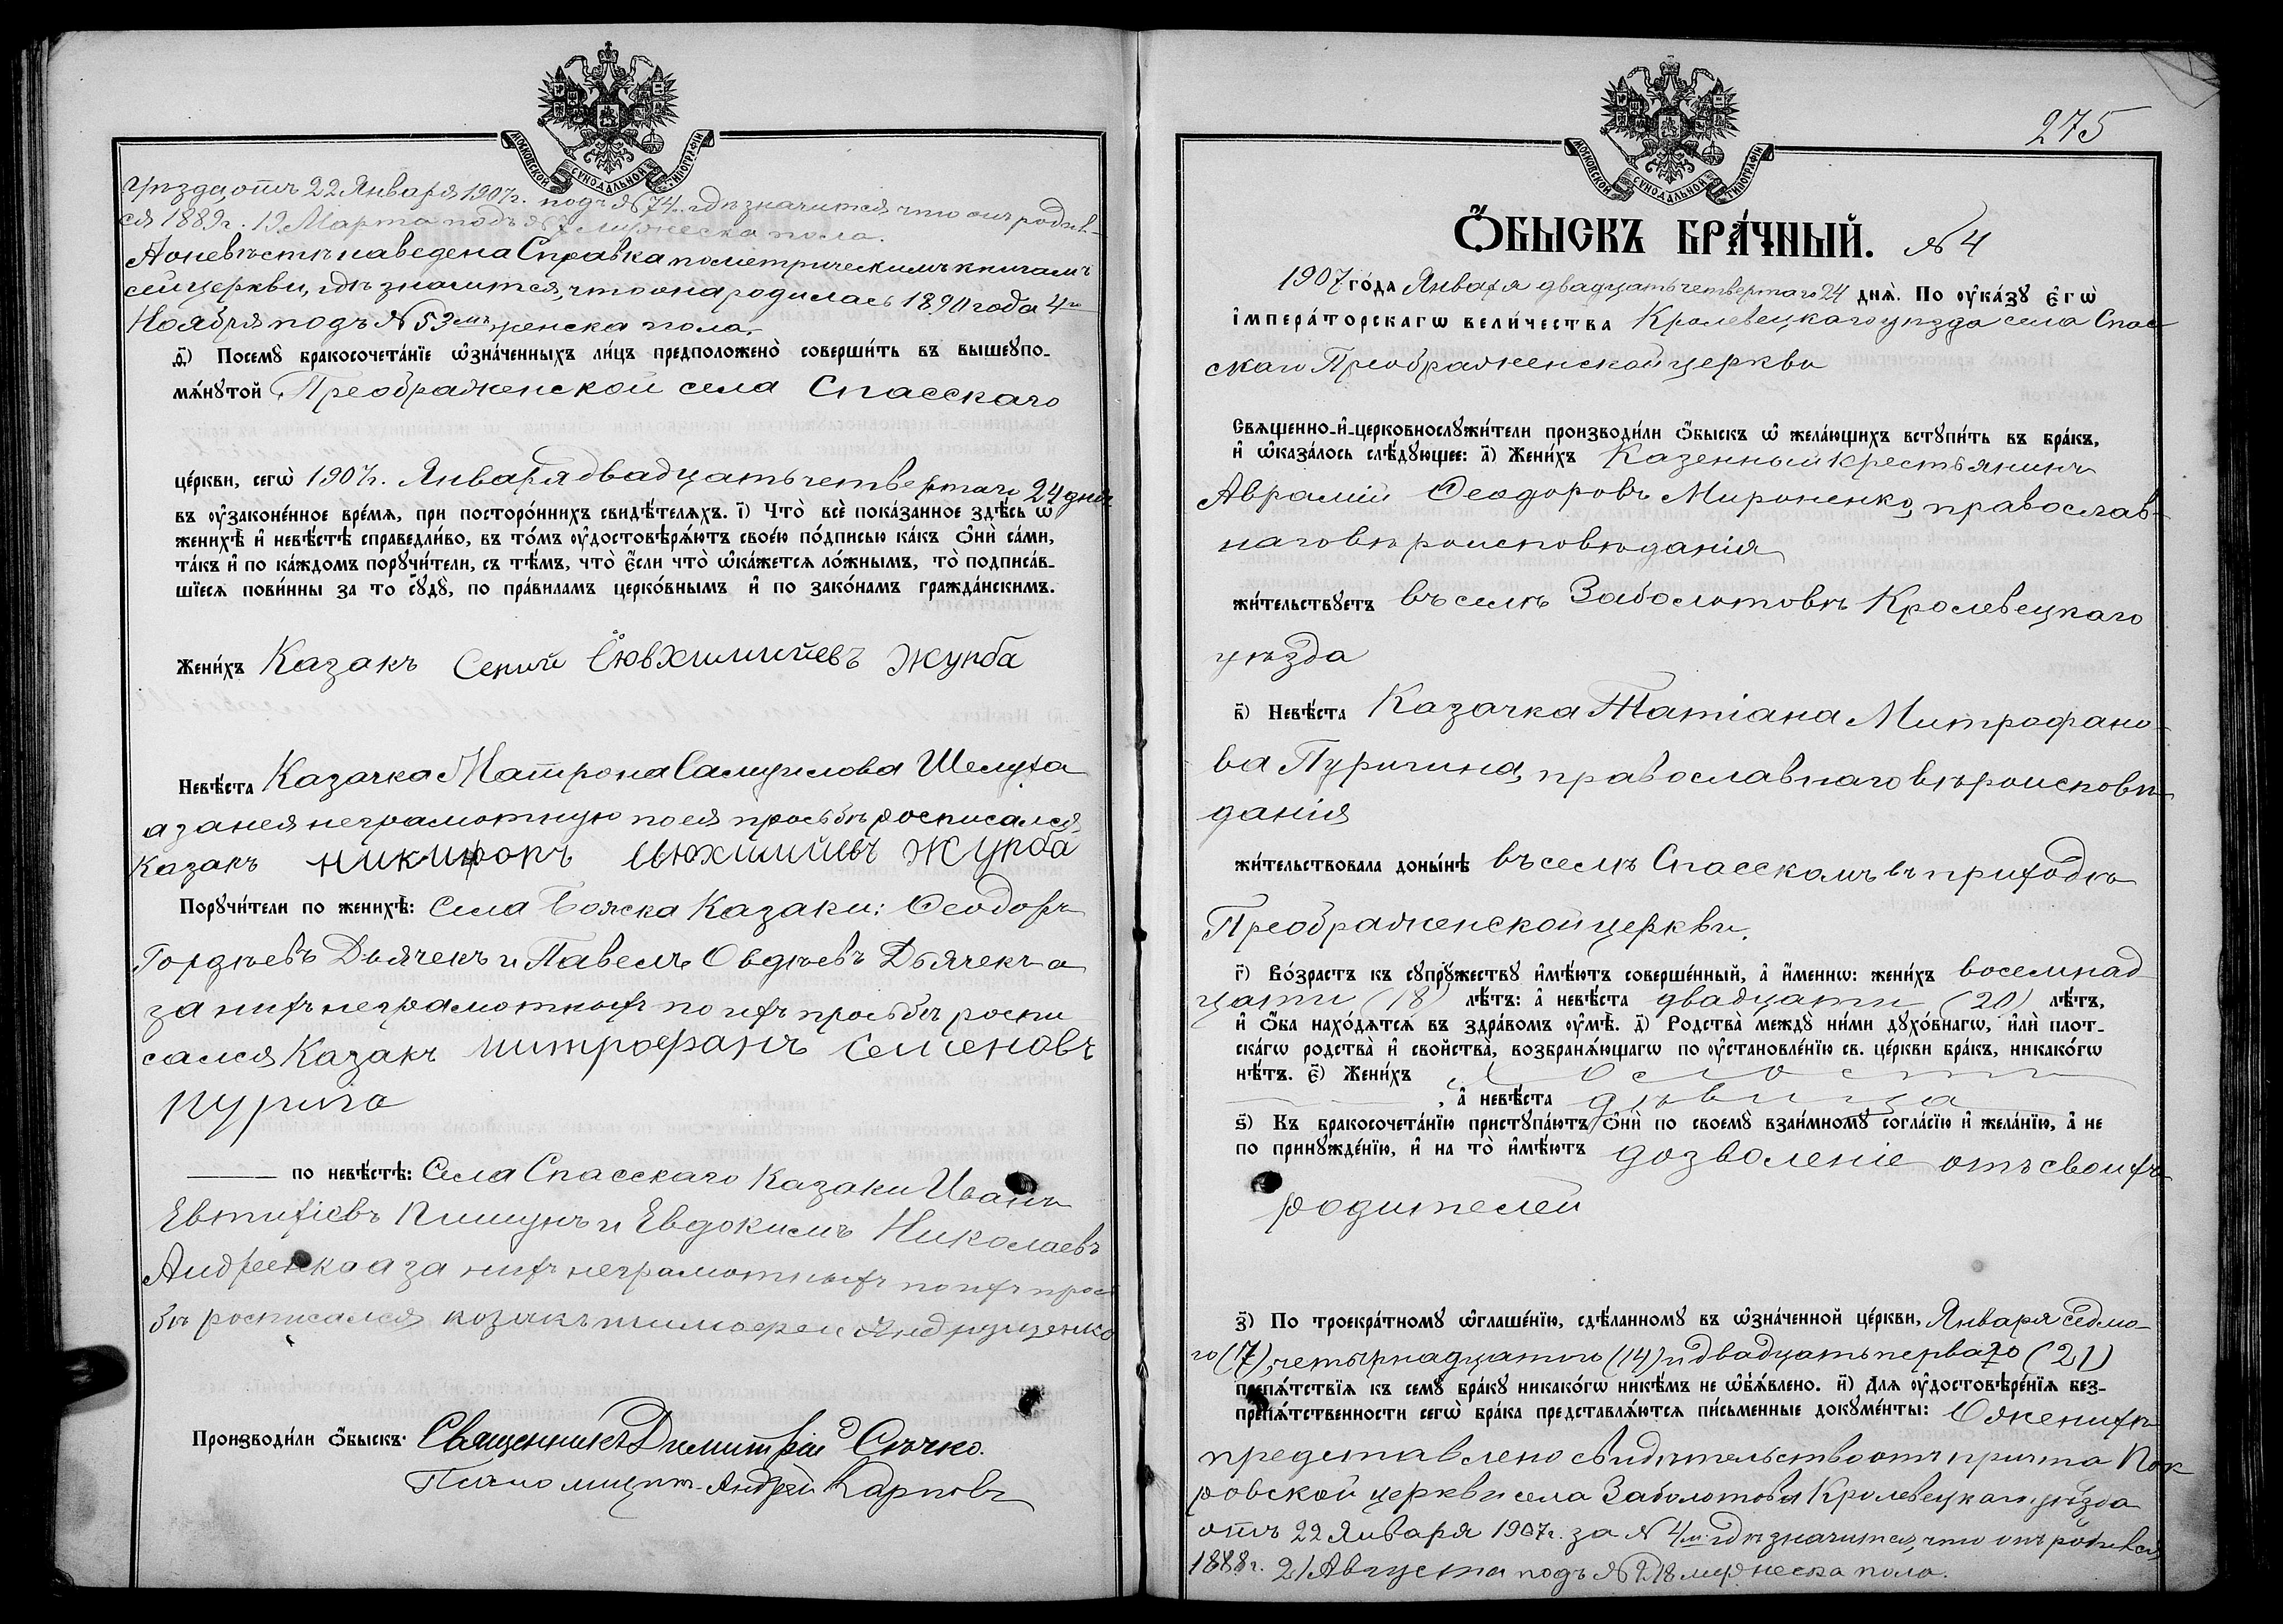 МОСКОВСКОЙ СѴНОДАЛЬНОЙ ТИПОГРАФІИ
уѣзда, отъ 22 Января 1907г. подъ № 74. гдѣ значится что онъ родив-
ся 1889г. 19 Марта подъ № 7 мужеска пола.
А о невѣстѣ наведена Справка по метрическимъ книгамъ
сей церкви, гдѣ значится, что она родилась 1890 года 4го
Ноября подъ № 53мъ женска пола.
ѳ҃) Посемꙋ̀ бракосочета́нїе ѡ҆зна́ченныхъ ли́цъ предположено̀ соверши́ть въ вышеꙋпо-
мѧ́нꙋтой Преображенской села Спасскаго
це́ркви, сегѡ̀ 1907г. Января двадцать четвертаго 24 дня
въ ᲂу҆законе́нное вре́мѧ, при посторо́ннихъ свидѣ́телѧхъ. і҃) Что̀ всѐ пока́занное здѣ́сь ѡ҆
женихѣ̀ и҆ невѣ́стѣ справедли́во, въ то́мъ ᲂу҆достовѣрѧ́ютъ свое́ю по́дписью ка́къ ѻ҆нѝ са́ми,
та́къ и҆ по ка́ждомъ порꙋчи́тели, съ тѣ́мъ, что̀ є҆́сли что̀ ѡ҆ка́жетсѧ ло́жнымъ, то̀ подписа́в-
шїесѧ пови́нны за то сꙋдꙋ̀, по пра́виламъ церко́внымъ и҆ по зако́намъ гражда́нскимъ.
Жени́хъ Казакъ Сергій Ѥвхимийевъ Журба
Невѣ́ста Казачка Матрона Самуилова Шелуха
а за нея неграмотную по ея просьбѣ росписался
Казакъ никифоръ Журба
Порꙋчи́тели по женихѣ̀: Села Казаки: Ѳеодоръ
Гордѣевъ Дьячекъ и Павелъ Овдѣевъ Дьячекъ а
за нихъ неграмотныхъ по ихъ просьбѣ роспи
сался Казакъ митрофанъ Семеновъ
пурига
по невѣ́стѣ: Села Спасскаго Казаки Иванъ
Евтихіевъ Пишунъ и Евдокимъ Николаевъ
Андреенко а за нихъ неграмотныхъ по ихъ прос
бѣ росписался козакъ тимофеи Андрущенко
Производи́ли ѻ҆́быскъ: Священникъ Димитрій Сѣчко.
Псаломщикъ Андрей Карповъ
275
МОСКОВСКОЙ СѴНОДАЛЬНОЙ ТИПОГРАФІИ
Ѻ҆́БЫСКЪ БРА́ЧНЫЙ. № 4
1907 го́да Января двадцать четвертаго 24 днѧ̀. По ᲂу҆ка́зꙋ є҆гѡ̀
і҆мпера́торскагѡ вели́чества Кролевецкаго уѣзда села Спас
скаго Преображенской церкви
Свѧщенно-и҆-церковнослꙋжи́тели производи́ли ѻ҆́быскъ ѡ҆ жела́ющихъ встꙋпи́ть въ бра́къ,
и҆ ѡ҆каза́лось слѣ́дꙋющее: а҃) Жени́хъ Казенный крестьянинъ
Аврамій Ѳеодоровъ Мироненко, православ-
наго вѣроисповѣданія
жи́тельствꙋетъ въ селѣ Заболотовѣ Кролевецкаго
уѣзда
в҃) Невѣ́ста Казачка Татіана Митрофано-
ва Пуригина, православнаго вѣроисповѣ-
данія
жи́тельствовала доны́нѣ въ селѣ Спасскомъ въ приходѣ
Преображенской церкви.
г҃) Во́зрастъ къ сꙋпрꙋ́жествꙋ и҆мѣ́ютъ соверше́нный, а҆ и҆́меннѡ: жени́хъ восемнад
цати (18) лѣ́тъ: а҆ невѣ́ста двадцати (20) лѣ́тъ,
и҆ ѻ҆́ба нахо́дѧтсѧ въ здра́вомъ ᲂу҆мѣ̀. д҃) Родства̀ междꙋ̀ ни́ми дꙋхо́внагѡ, и҆лѝ плот-
ска́гѡ родства̀ и҆ сво́йства̀, возбранѧ́ющагѡ по ᲂу҆становле́нїю св. це́ркви бра́къ, никако́гѡ
нѣ́тъ. є҃) Жени́хъ холостъ
, а҆ невѣ́ста дѣвица
ѕ҃) Къ бракосочета́нїю пристꙋпа́ютъ ѻ҆нѝ по своемꙋ̀ взаи́мномꙋ согла́сїю и҆ жела́нїю, а҆ не
по принꙋжде́нїю, и҆ на то̀ и҆мѣ́ютъ дозволеніе отъ своихъ
родителей
з҃) По троекра́тномꙋ ѡ҆глаше́нїю, сдѣ́ланномꙋ въ ѡ҆зна́ченной це́ркви, Января седмо-
го (7), четырнадцатого (14) и двадцать перваго (21)
препѧ́тствїѧ къ семꙋ̀ бра́кꙋ никако́гѡ никѣ́мъ не ѡ҆б̾ѧ́влено. и҃) Длѧ ᲂу҆достовѣре́нїѧ без-
препѧ́тственности сегѡ̀ бра́ка представлѧ́ютсѧ пи́сьменные докꙋме́нты: О женихѣ
представлено свидѣтельство отъ причта Пок
ровской церкви села Заболотова Кролевецкаго уѣзда
отъ 22 Января 1907г. за № 4м. гдѣ значится, что онъ родился
1888г. 21 Августа подъ № 28 мужеска пола.